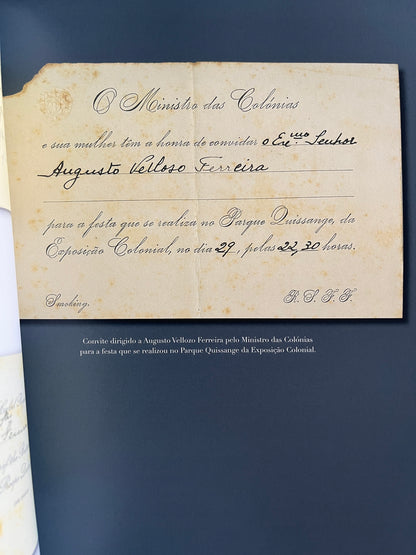 O Ministro das Colónias
e sua mulher têm a honra de convidar o Exmo. Senhor
Augusto Velloso Ferreira
para a festa que se realiza no Parque Quissange, da
Exposição Colonial, no dia 29, pelas 22,30 horas.
Smoking. R. S. F. F.
Convite dirigido a Augusto Vellozo Ferreira pelo Ministro das Colónias
para a festa que se realizou no Parque Quissange da Exposição Colonial.